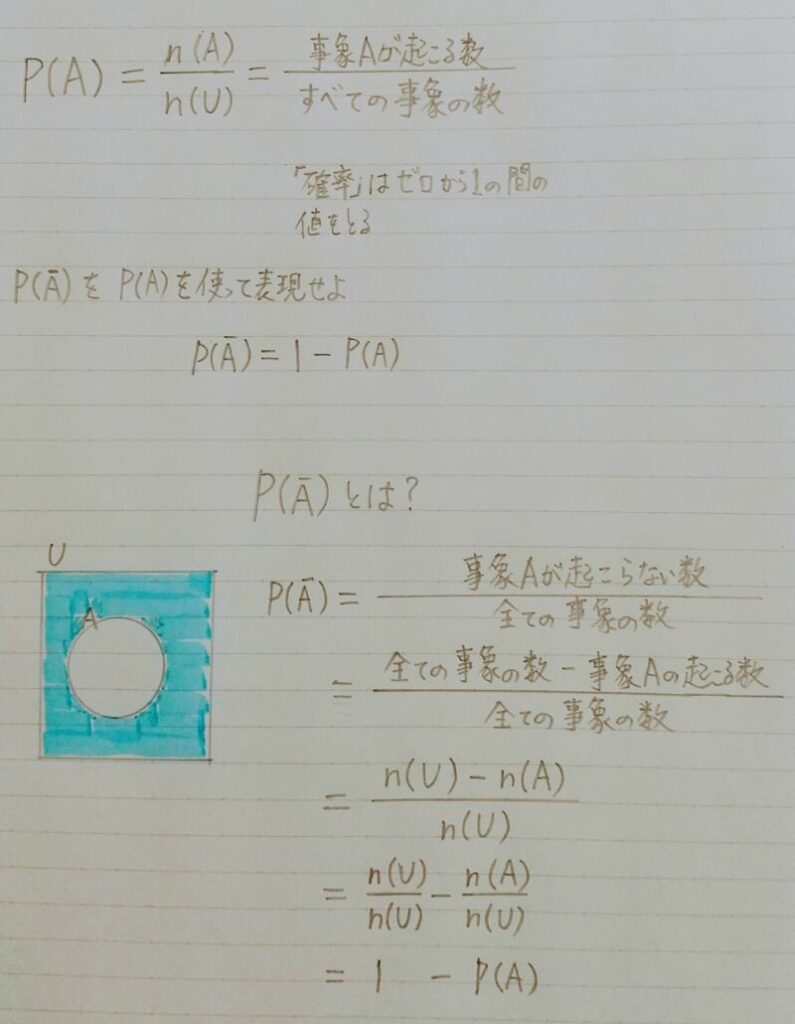 P(A) = n(A)/n(U) = 事象Aが起こる数/すべての事象の数
「確率」はゼロから1の間の
値をとる
P(Ā)を P(A)を使って表現せよ
P(Ā) = 1 − P(A)
P(Ā)とは?
U
A
P(Ā) = 事象Aが起こらない数/全ての事象の数
= 全ての事象の数 − 事象Aの起こる数/全ての事象の数
= n(U) − n(A)/n(U)
= n(U)/n(U) − n(A)/n(U)
= 1 − P(A)